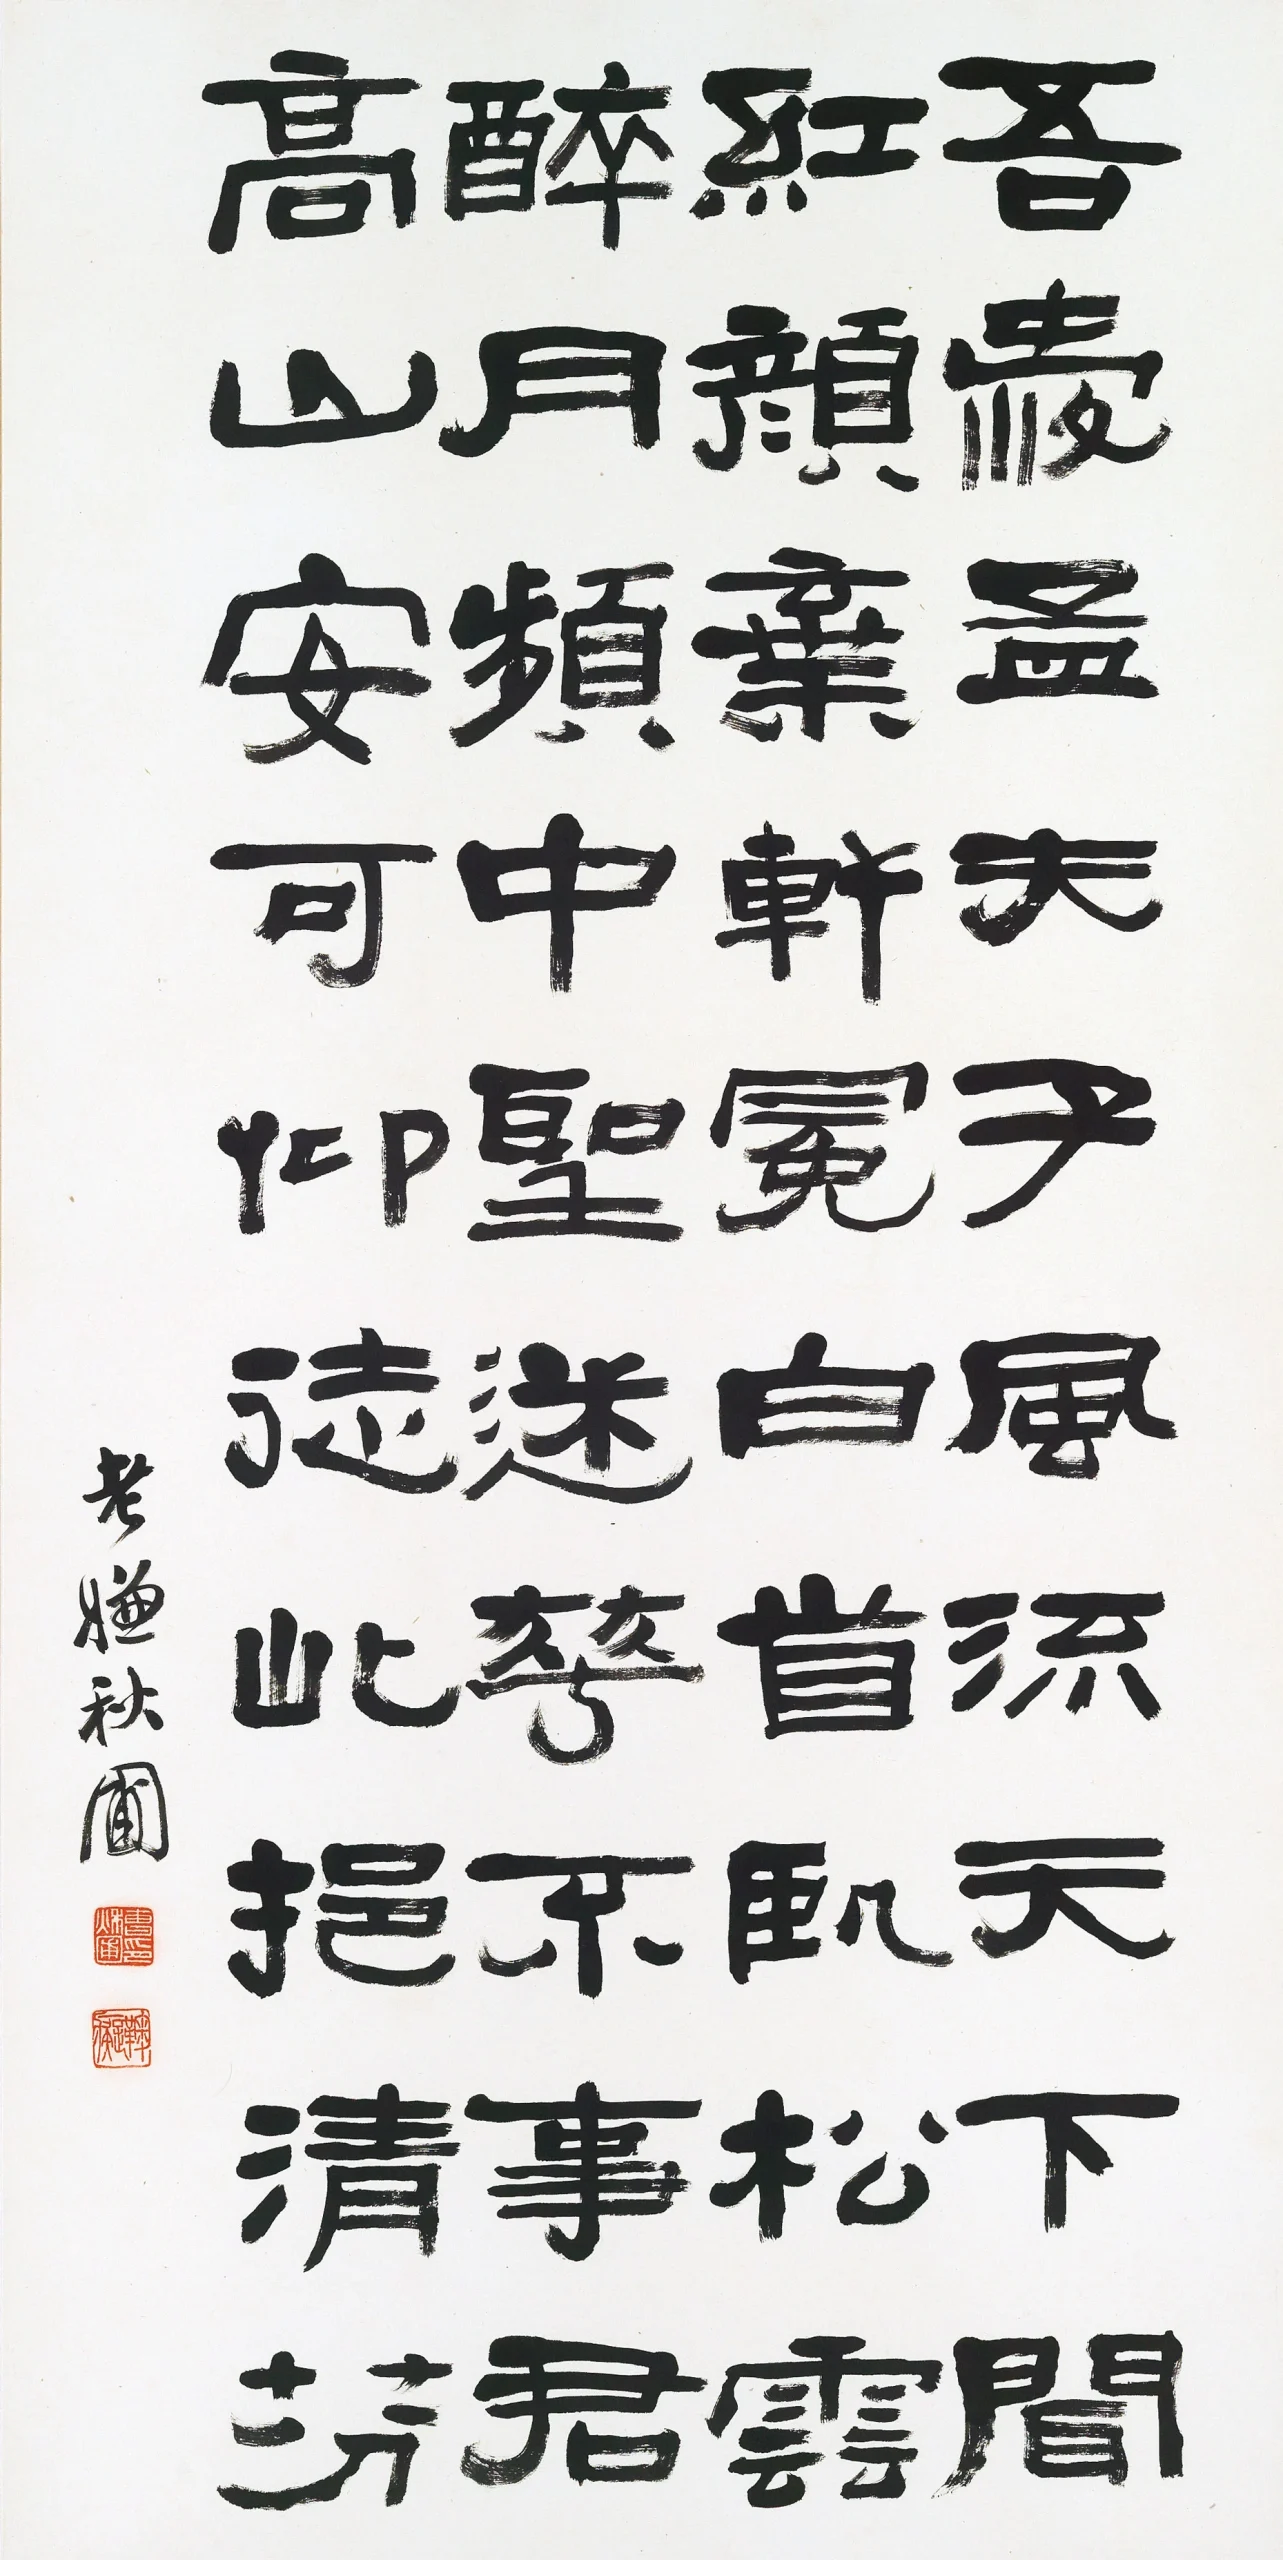 吾愛孟夫子風流天下聞
紅顏棄軒冕白首臥松雲
醉月頻中聖迷花不事君
高山安可仰徒此挹清芬
老嫌秋圃